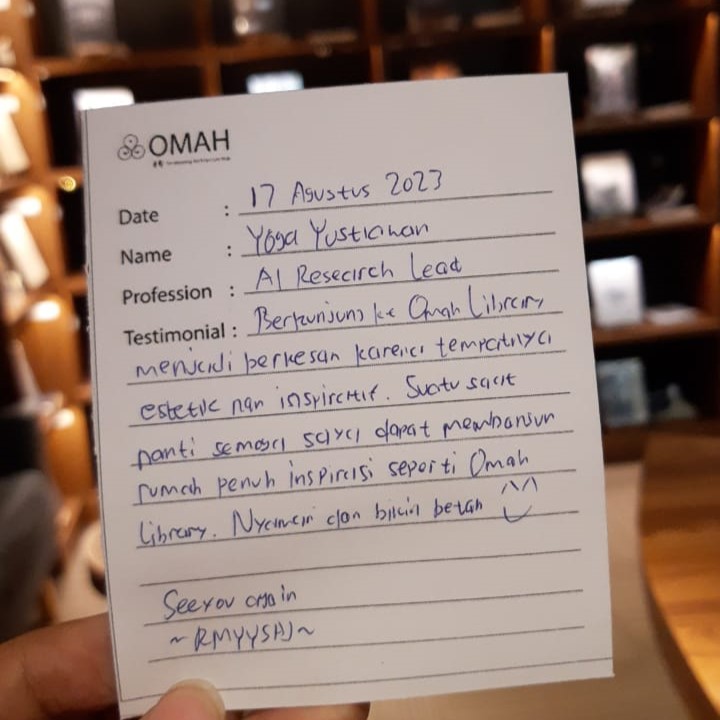 OMAH
Date : 17 Agustus 2023
Name : Yoga Yustiawan
Profession : AI Research Lead
Testimonial : Berkunjung ke Omah Library
menjadi berkesan karena tempatnya
estetik nan inspiratif. Suatu saat
nanti semoga saya dapat membangun
rumah penuh inspirasi seperti Omah
Library. Nyaman dan bikin betah ^^
See you again
~RMYYSAJ~